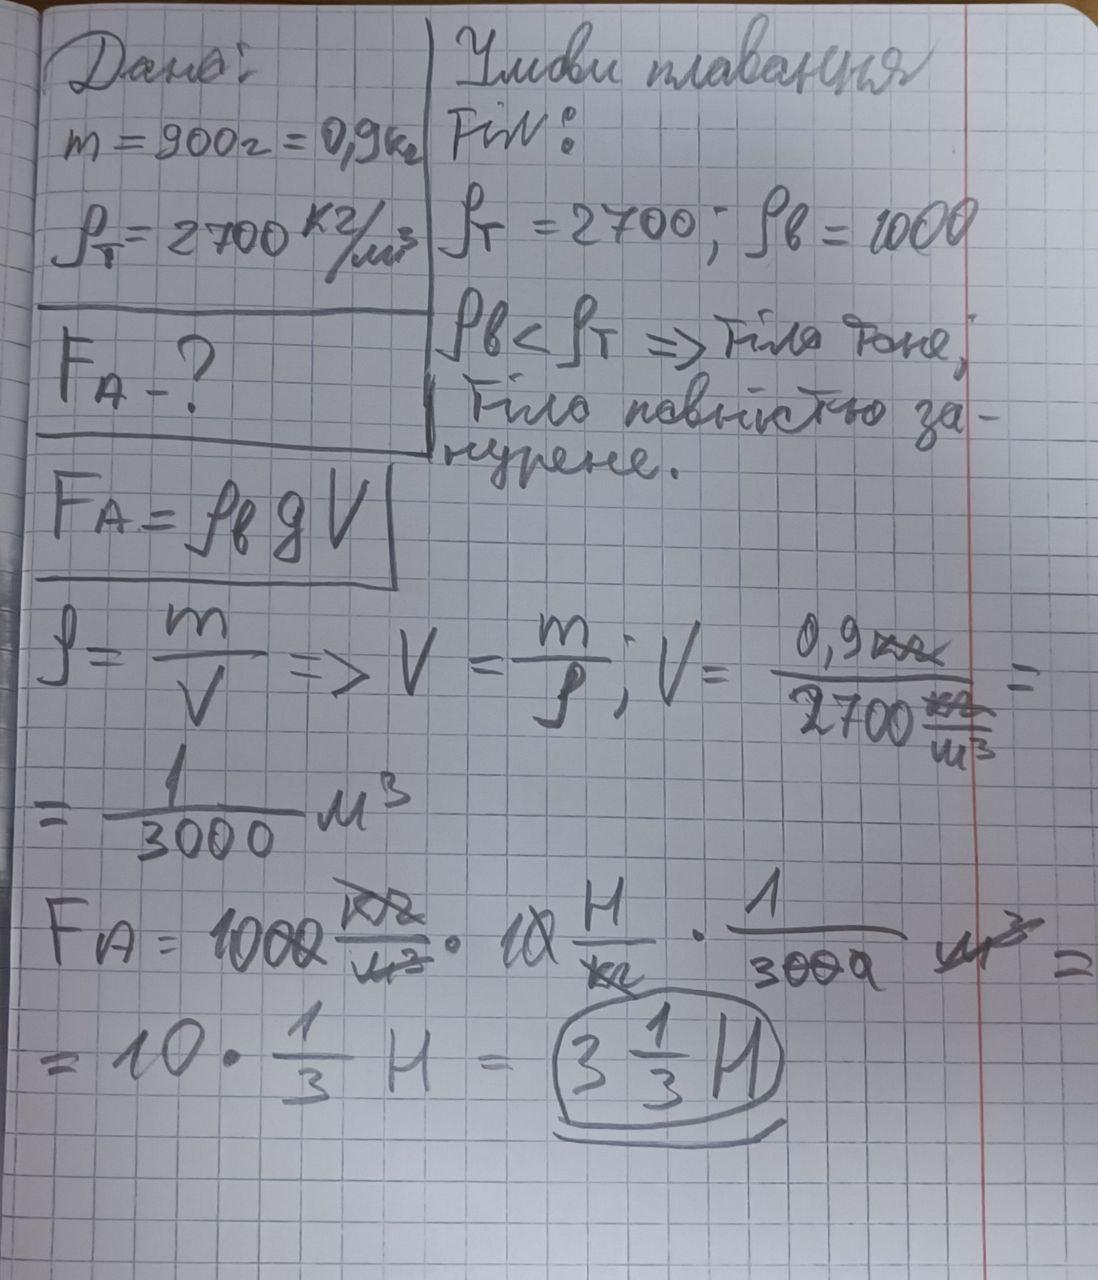 Дано:
m = 900г = 0,9кг
ρт = 2700 кг/м³
FA - ?
Умови плавання
тіл:
ρт = 2700; ρв = 1000
ρв < ρт => тіло тоне;
тіло повністю за-
нурене.
FA = ρв g V
ρ = m/V => V = m/ρ; V = 0,9кг / 2700 кг/м³ =
= 1/3000 м³
FA = 1000 кг/м³ · 10 Н/кг · 1/3000 м³ =
= 10 · 1/3 Н = 3 1/3 Н